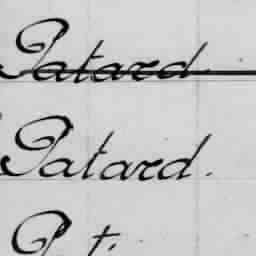 Patard
Patard.